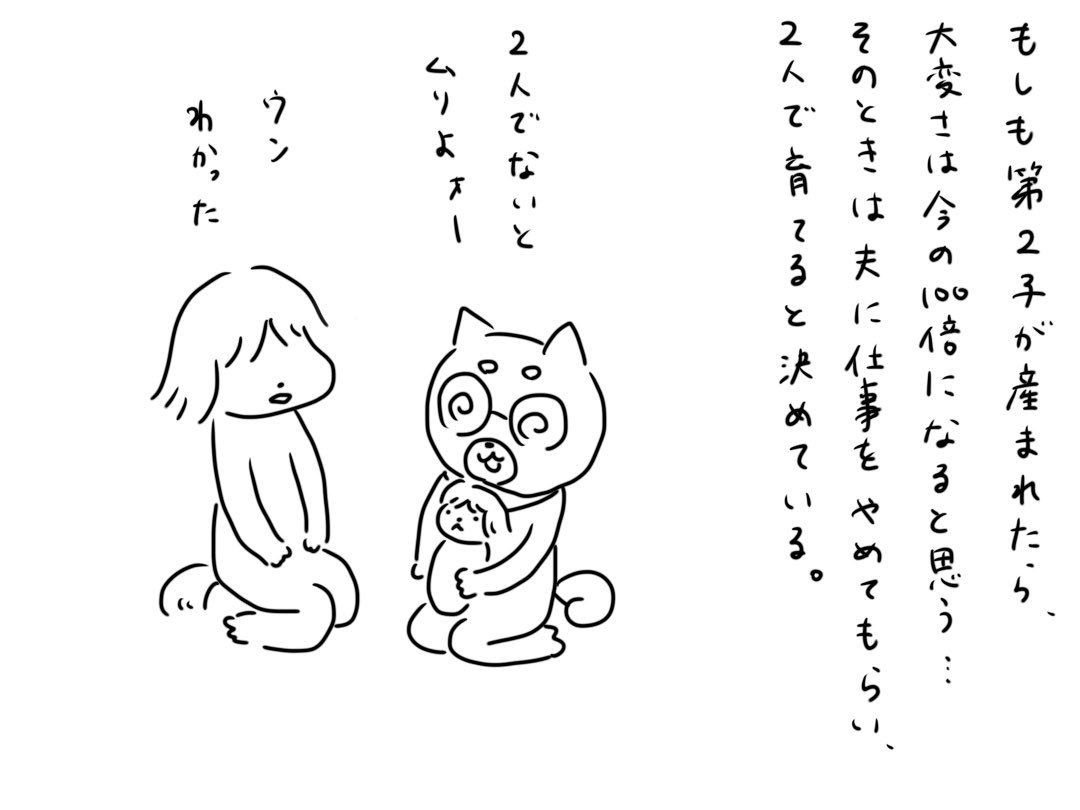 もしも第2子が産まれたら、
大変さは今の100倍になると思う…
そのときは夫に仕事をやめてもらい、
2人で育てると決めている。
2人でないと
ムリよォー
ウン
わかった